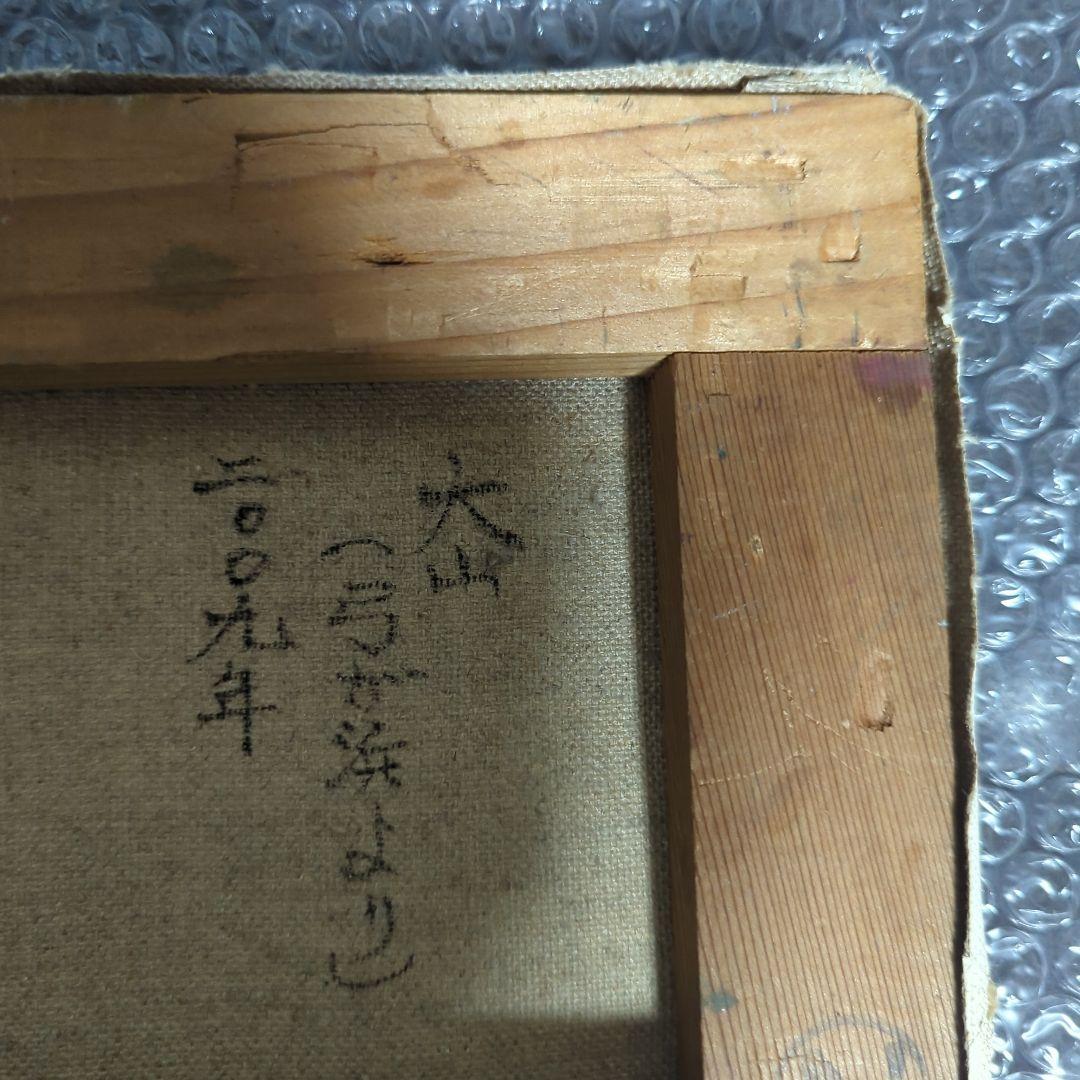 大山
(弓ヶ浜より)
二〇〇九年